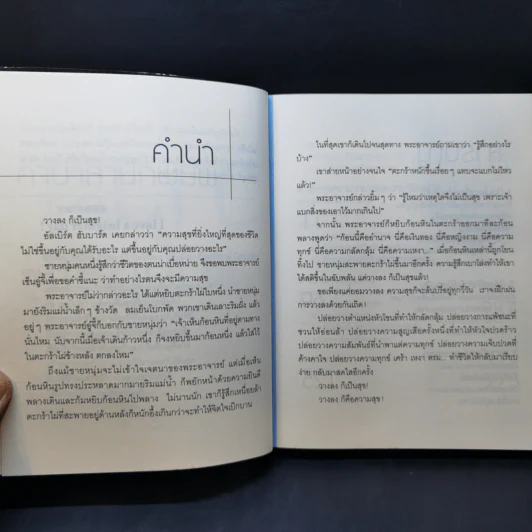 คำนำ
วางลง ก็เป็นสุข!
อัลเบิร์ต ฮับบาร์ด เคยกล่าวว่า “ความสุขที่ยิ่งใหญ่ที่สุดของชีวิต
ไม่ใช่ขึ้นอยู่กับคุณได้รับอะไร แต่ขึ้นอยู่กับคุณปล่อยวางอะไร”
ชายหนุ่มคนหนึ่งรู้สึกว่าชีวิตของตนน่าเบื่อหน่าย จึงขอพบพระอาจารย์
เซ็นอู๋จี้เพื่อขอคำชี้แนะ ว่าทำอย่างไรตนจึงจะมีความสุข
พระอาจารย์ไม่ว่ากล่าวอะไร ได้แต่หยิบตะกร้าไม้ใบหนึ่ง นำชายหนุ่ม
มายังริมแม่น้ำเล็กๆ ข้างวัด ลมเย็นโบกพัด พวกเขาเดินเลาะริมฝั่ง แล้ว
อยู่ๆ พระอาจารย์อู๋จี้ก็บอกกับชายหนุ่มว่า “เจ้าเห็นก้อนหินที่อยู่ตามทาง
นั่นไหม นับจากนี้เมื่อเจ้าเดินก้าวหนึ่ง ก็จงหยิบขึ้นมาก้อนหนึ่ง แล้วใส่ไว้
ในตะกร้าไม้ข้างหลัง ตกลงไหม”
ถึงแม้ชายหนุ่มจะไม่เข้าใจเจตนาของพระอาจารย์ แต่เมื่อเห็น
ก้อนหินรูปทรงประหลาดมากมายริมแม่น้ำ ก็พยักหน้าด้วยความยินดี
พลางเดินและก้มหยิบก้อนหินไปพลาง ไม่นานนัก เขาก็รู้สึกเหนื่อยล้า
ตะกร้าไม้ที่สะพายอยู่ด้านหลังก็หนักอึ้งเกินกว่าจะทำให้จิตใจเบิกบาน
ในที่สุดเขาก็เดินไปจนสุดทาง พระอาจารย์ถามเขาว่า “รู้สึกอย่างไร
บ้าง”
เขาส่ายหน้าอย่างจนใจ “ตะกร้าหนักขึ้นเรื่อยๆ แทบจะแบกไม่ไหว
แล้ว!”
พระอาจารย์กล่าวยิ้มๆ ว่า “รู้ไหมว่าเหตุใดจึงไม่เป็นสุข เพราะเจ้า
แบกสิ่งของเอาไว้มากเกินไป”
จากนั้น พระอาจารย์ก็หยิบก้อนหินในตะกร้าออกมาทีละก้อน
พลางพูดว่า “ก้อนนี้คืออำนาจ นี่คือเงินทอง นี่คือหญิงงาม นี่คือความ
ทุกข์ นี่คือความกลัดกลุ้ม นี่คือความเหงา...” เมื่อก้อนหินเหล่านี้ถูกโยน
ทิ้งไป ชายหนุ่มสะพายตะกร้าไม้ขึ้นมาอีกครั้ง ความรู้สึกเบาโล่งทำให้เขา
ได้สติขึ้นในฉับพลัน แค่วางลง ก็เป็นสุขแล้ว!
ขอเพียงแค่ยอมวางลง ความสุขก็จะล้นปรี่อยู่ทุกวี่วัน เราจงฝึกฝน
การวางลงด้วยกันเถิด!
ปล่อยวางตำแหน่งหัวโขนที่ทำให้กลัดกลุ้ม ปล่อยวางภาระที่
ชวนให้อ่อนล้า ปล่อยวางความสูญเสียครั้งหนึ่งที่ทำให้หัวใจปวดร้าว
ปล่อยวางความสัมพันธ์ที่นำพาความทุกข์ ปล่อยวางความเจ็บปวดที่
ค้างคาใจ ปล่อยวางความทุกข์ เศร้า เหงา ตรม... ทำชีวิตให้กลับมาเรียบ
ง่าย กลับมาสดใสอีกครั้ง
วางลง ก็เป็นสุข!
วางลง ก็คือความสุข!